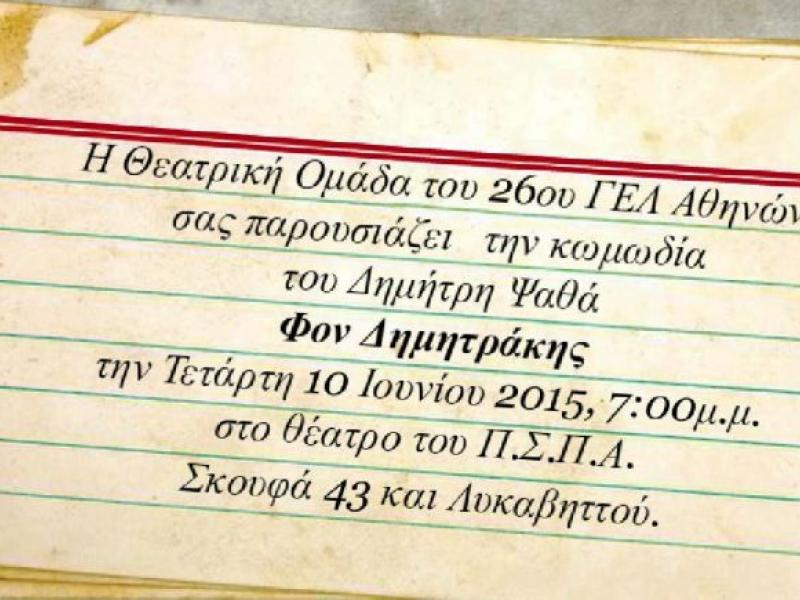 Η Θεατρική Ομάδα του 26ου ΓΕΛ Αθηνών
σας παρουσιάζει την κωμωδία
του Δημήτρη Ψαθά
Φον Δημητράκης
την Τετάρτη 10 Ιουνίου 2015, 7:00μ.μ.
στο θέατρο του Π.Σ.Π.Α.
Σκουφά 43 και Λυκαβηττού.